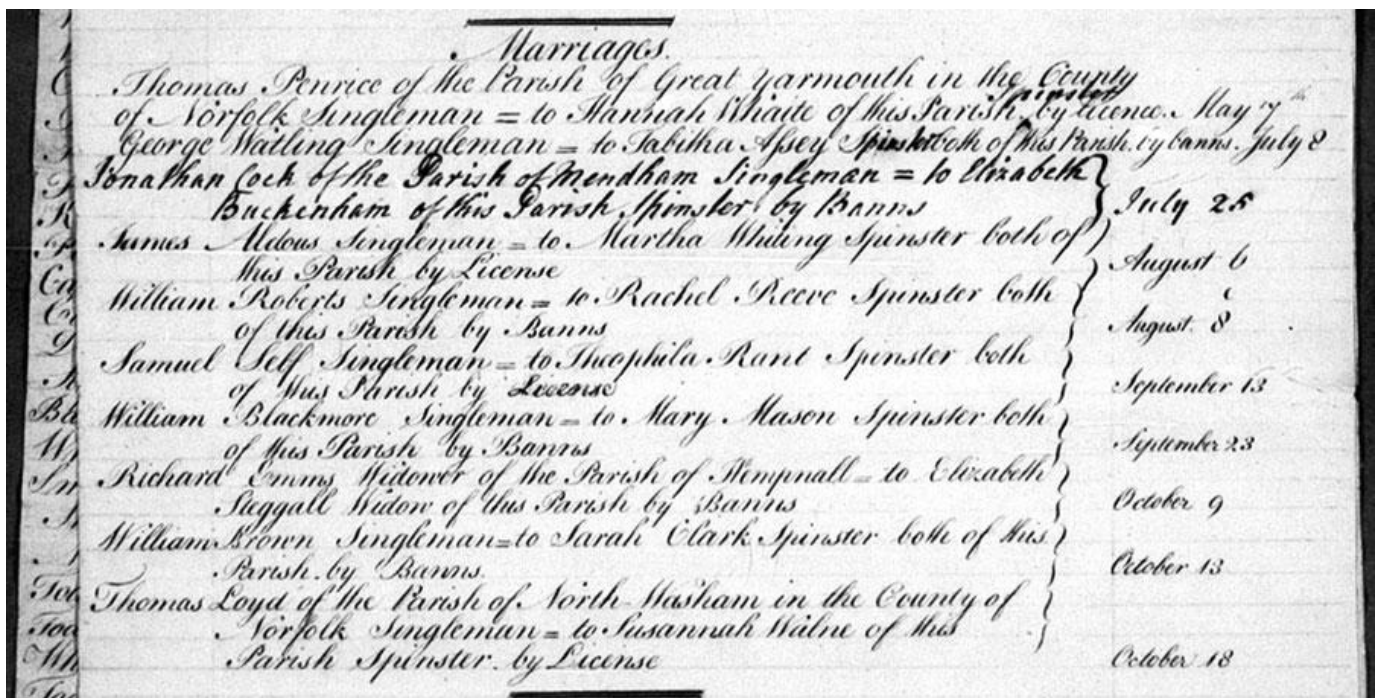 Marriages.
Thomas Penrice of the Parish of Great Yarmouth in the County
of Norfolk Singleman = to Hannah Whaite of this Parish spinster by licence. May 7th
George Watling Singleman = to Tabitha Assey Spinster both of this Parish by banns. July 8
Jonathan Cock of the Parish of Mendham Singleman = to Elizabeth
Buckenham of this Parish Spinster by Banns July 25
James Aldous Singleman = to Martha Whiting Spinster both of
this Parish by License August 6
William Roberts Singleman = to Rachel Reeve Spinster both
of this Parish by Banns August 8
Samuel Self Singleman = to Theophila Rant Spinster both
of this Parish by License September 13
William Blackmore Singleman = to Mary Mason Spinster both
of this Parish by Banns September 23
Richard Emms Widower of the Parish of Hempnall = to Elizabeth
Steggall Widow of this Parish by Banns October 9
William Brown Singleman = to Sarah Clark Spinster both of this
Parish by Banns. October 13
Thomas Loyd of the Parish of North Walsham in the County of
Norfolk Singleman = to Susannah Walne of this
Parish Spinster by License October 18